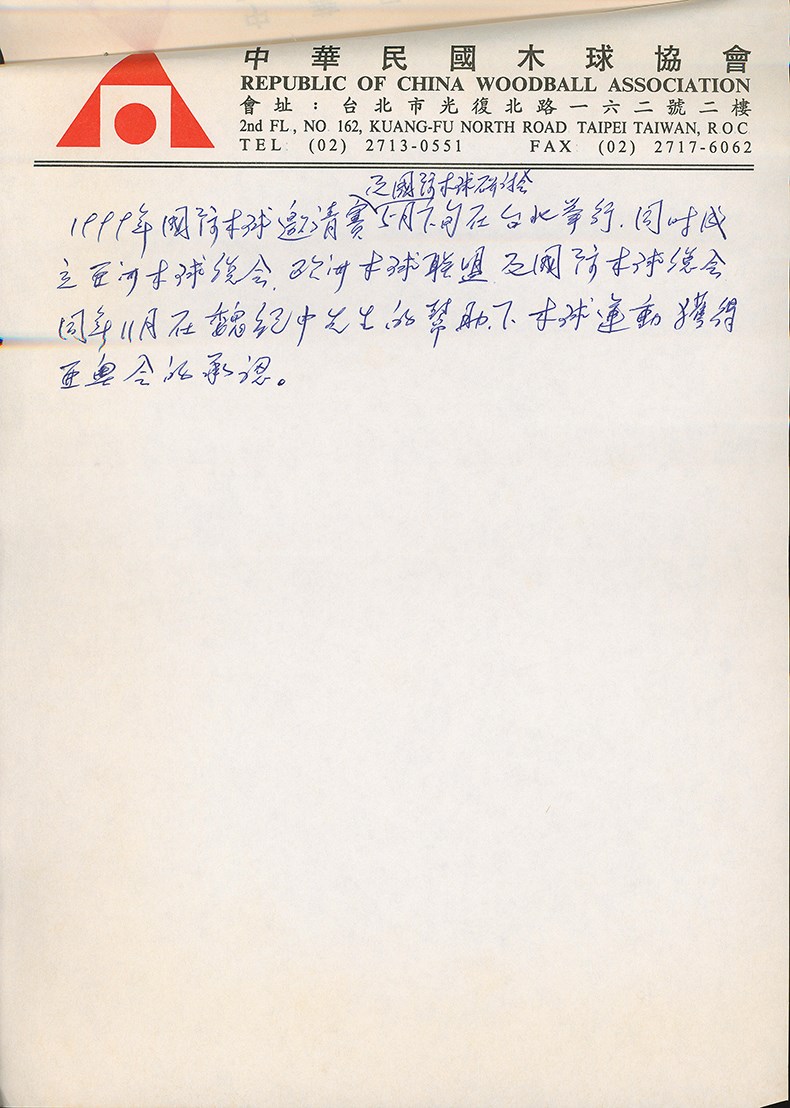 中華民國木球協會
REPUBLIC OF CHINA WOODBALL ASSOCIATION
會址：台北市光復北路一六二號二樓
2nd FL., NO. 162, KUANG-FU NORTH ROAD TAIPEI TAIWAN, R O C
TEL: (02) 2713-0551 FAX: (02) 2717-6062
及國际木球研讨会
1999年國际木球邀请賽5月下旬在台北举行.同时成
立亚洲木球總会.欧洲木球联盟及國际木球總会
同年11月在魏紀中先生的幫助下木球運動獲得
亚奥会的承認。